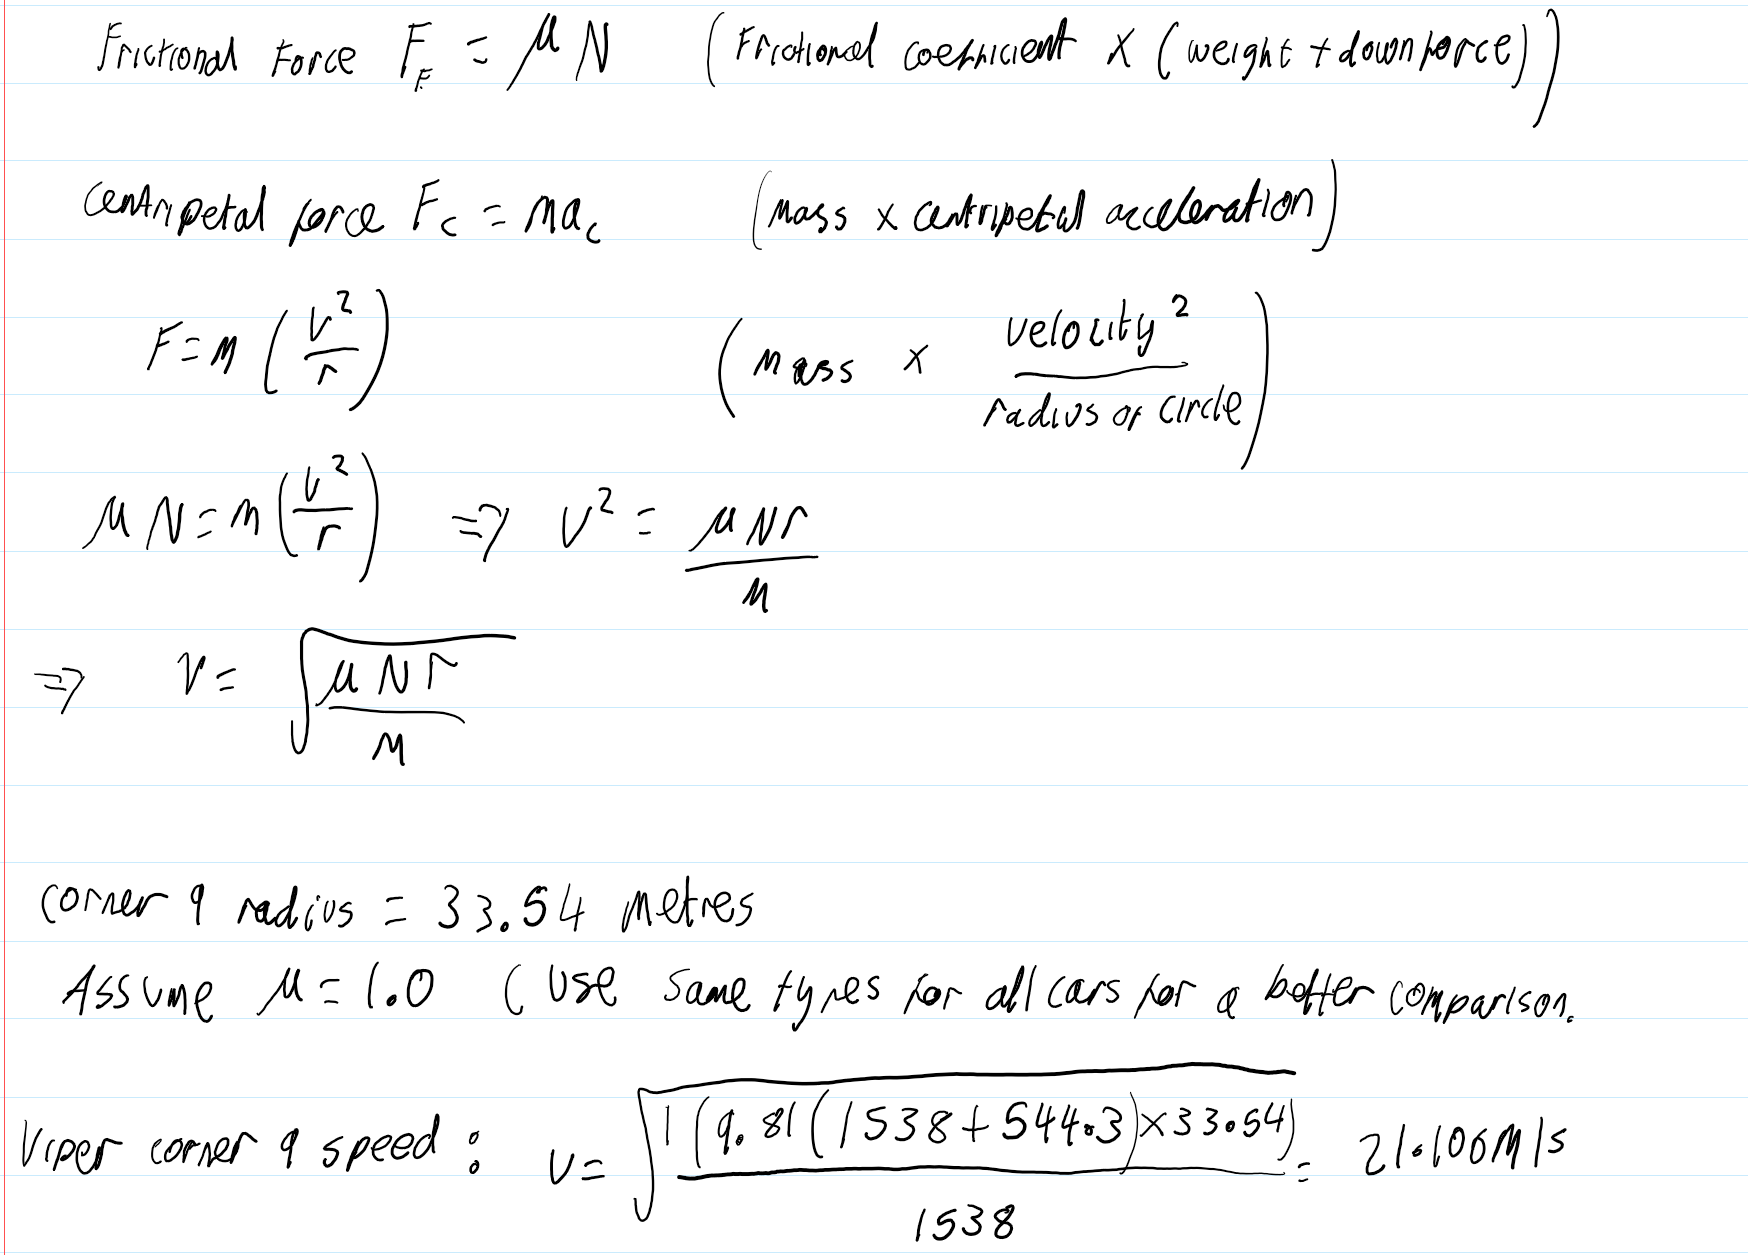 Frictional Force F_F = μN (Frictional coefficient × (weight + downforce))
Centripetal force F_c = ma_c (mass × centripetal acceleration)
F = m (v²/r) (mass × velocity²/radius of circle)
μN = m (v²/r) ⇒ v² = μNr/m
⇒ v = √(μNr/m)
Corner 9 radius = 33.54 metres
Assume μ = 1.0 (Use same tyres for all cars for a better comparison.
Viper corner 9 speed : v = √(1(9.81(1538+544.3)×33.54)/1538) = 21.106m/s